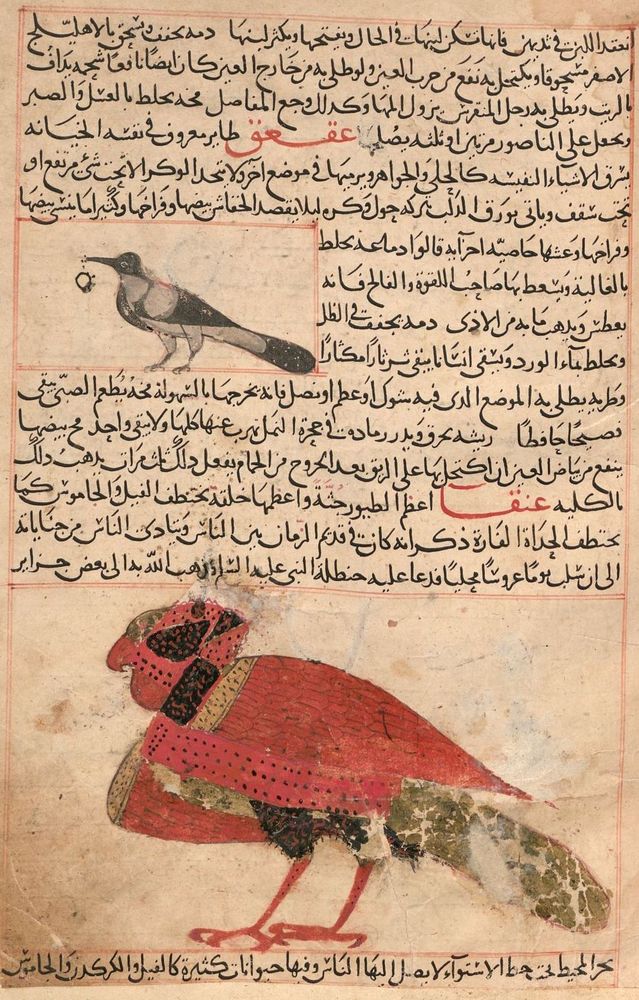 انعقد اللبن فى ثديهن فانها تسكن لبنها فى الحال ويفتحها ويكثر لبنها دمه يجفف ويسحق بالاهليلج
الاصفر مسحوقا ويكتحل به نفع من جرب العين ولو طلى به من خارج العين كان ايضا نافعا شحمه يذاف
بالزيت ويطلى به رجل المنقرس يزول المها وكذلك وجع المفاصل مخه يخلط بالعسل والصبر
ويجعل على الناصور مرتين او ثلثه يصلح عقعق طاير معروف فى نفسه الخيانه
يسرق الاشياء النفيسه كالحلى والجواهر ويرميها فى موضع آخر ولا يتخذ الوكر الا تحت شئ مرتفع او
تحت سقف وياتى بورق الدلب يتركه حول وكره ليلا يقصد الخفاش بيضها وفراخها وكثيرا ما ينسى بيضها
وفراخها وعشها خاصيه اجزآيه قالوا دماغه يخلط
بالغالية ويسعط بها صاحب اللقوة والفالج فانه
يعطس ويذهب ما به من الاذى دمه يجفف فى الظل
ويخلط بمآء الورد ويسقى انسانا يبقى ثرثارا مكثارا
وطريه يطلى به الموضع الذى فيه شوك او عظم او نصل فانه يخرجها بالسهولة مخه يطعم الصبى يبقى
فصيحا حافظا ريشه يحرق ويذر رماده فى حجرة النمل يهرب عنها كلها ولا يبقى واحد مح بيضها
ينفع من بياض العين ان اكتحل بها على الريق بعد الخروج من الحمام يفعل ذلك ثلث مرات يذهب ذلك
بالكليه عنقا اعظم الطيور جثة واعظمها خلقة يختطف الفيل والجاموس كما
يختطف الحداة الفارة ذكر انه كان فى قديم الزمان بين الناس ويتاذى الناس من جناياته
الى ان سلب يوما عروسا مجليا فدعا عليه حنظلة النبى عليه السلم فذهب الله به الى بعض جزاير
بحر المحيط تحت خط الاستوآء لا يصل اليها الناس وفيها حيوانات كثيرة كالفيل والكركدن والجاموس